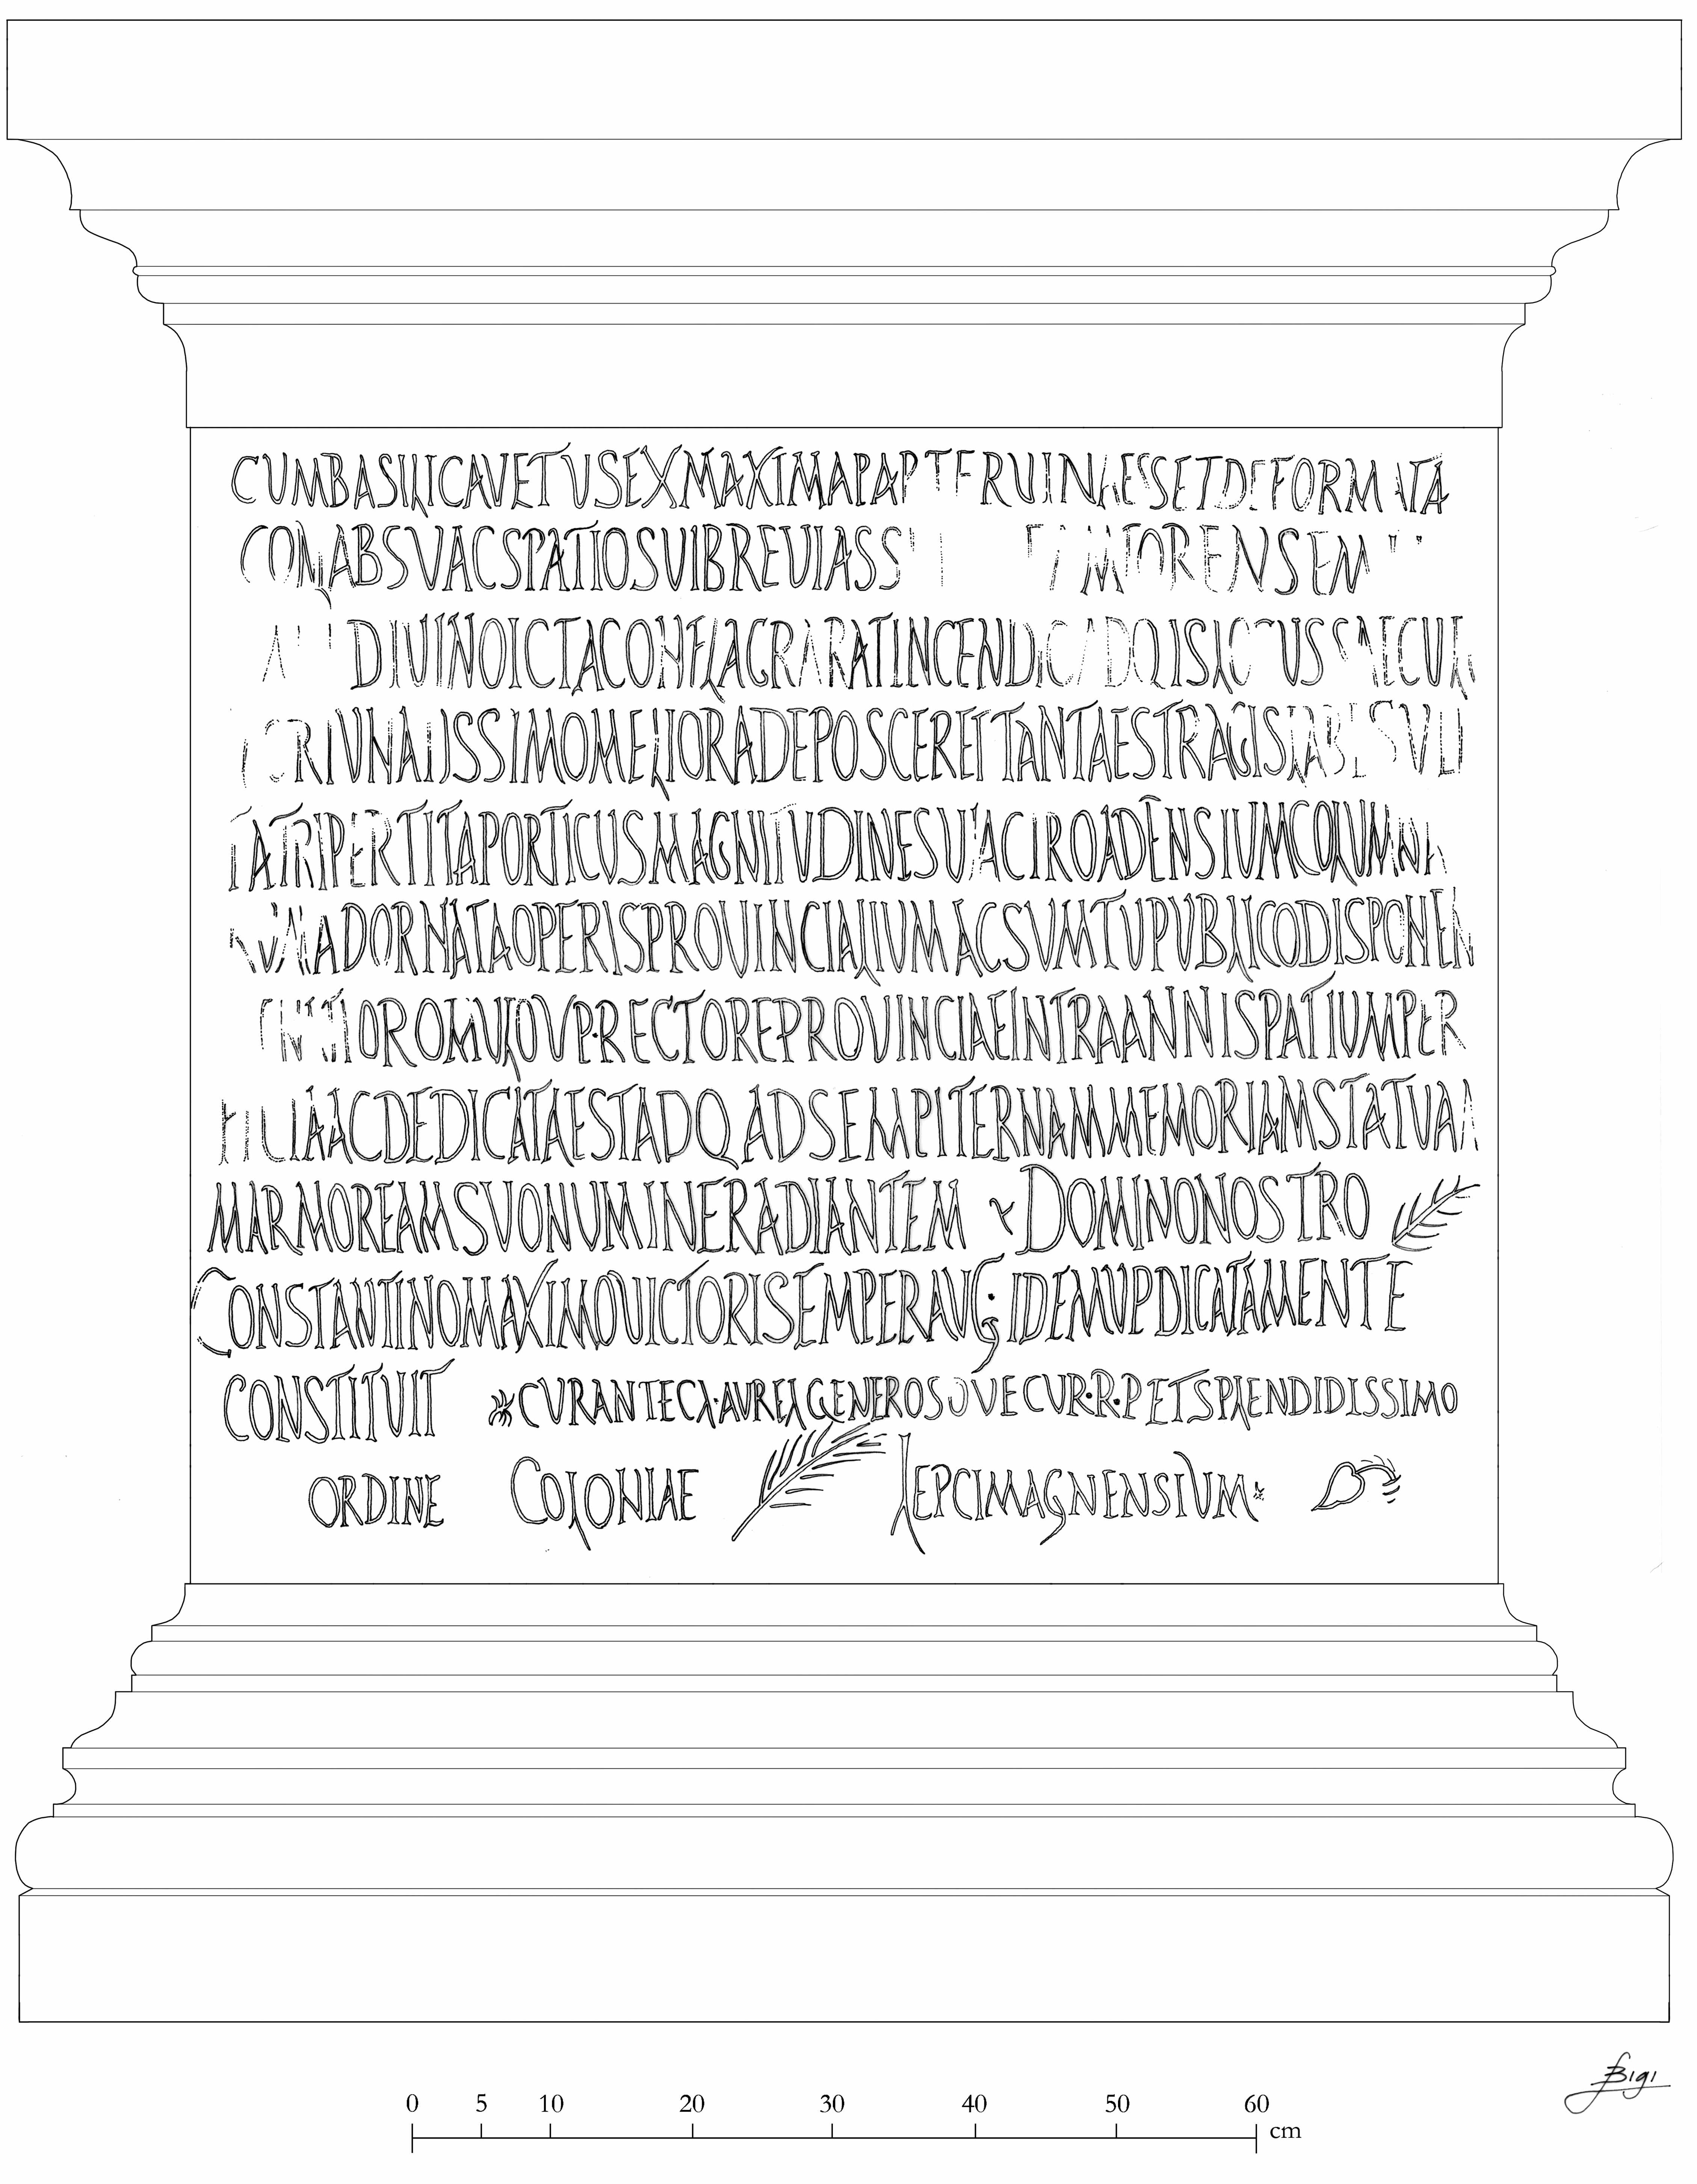 CUMBASILICAVETUSEXMAXIMAPARTERUINAESSETDEFORMATA
CONABSVACSPATIOSUIBREVIASS TAMFORENSEM
DIVINOICTACONFLAGRARATINCENDIOADQISLOCUSSAECUL
RIVNALISSIMOMELIORADEPOSCERETTANTAESTRAGISLABESVLI
TATRIPERTITAPORTICUSMAGNITVDINESUAACIROADENSIUMCOLUMNA
RVMADORNATAOPERISPROVINCIALIUMACSVMTUPVBLICODISPONEN
OROMULOVP·RECTOREPROVINCIAEINTRAANNISPATIUMPER
ACDEDICATAESTADQADSEMPITERNAMMEMORIAMSTATUAM
MARMOREAMSVONUMINERADIANTEM DOMINONOSTRO
CONSTANTINOMAXIMOVICTORISEMPERAVG·IDEMVPDICATAMENTE
CONSTITVIT CVRANTECL·AVRELGENEROSOVECUR·R·PETSPLENDIDISSIMO
ORDINE COLONIAE LEPCIMAGNENSIVM
BIGI
0 5 10 20 30 40 50 60 cm